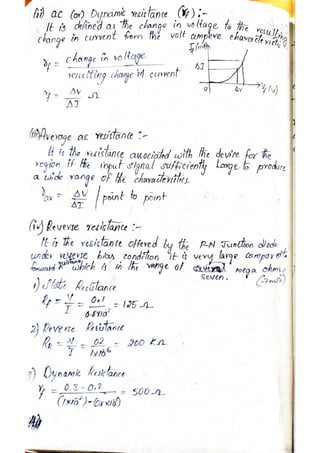 (ii) ac (or) Dynamic resistance (rf) :-
It is defined as the change in voltage to the resulting
change in current form the volt ampere characteristics
If (mA)
rf = change in voltage
resulting change in current
ΔI
0 ΔV Vf (V)
rf = ΔV
ΔI Ω
(iii) Average ac resistance :-
It is the resistance associated with the device for the
region if the input signal sufficiently Large to produce
a wide range of the characteristics.
rav = ΔV
ΔI | point to point
(iv) Reverse resistance :-
It is the resistance offered by the P-N Junction diode
under reverse bias condition It is very large compared to
forward resistance which is in the range of mega ohms
seven.
1) Static Resistance
Rf = V = 0.1 = 125 Ω
I 0.8×10³
2) Reverse Resistance
RR = V = 02 = 200 KΩ
I 1×10⁶
3) Dynamic Resistance
rf = 0.3 - 0.2 = 500 Ω